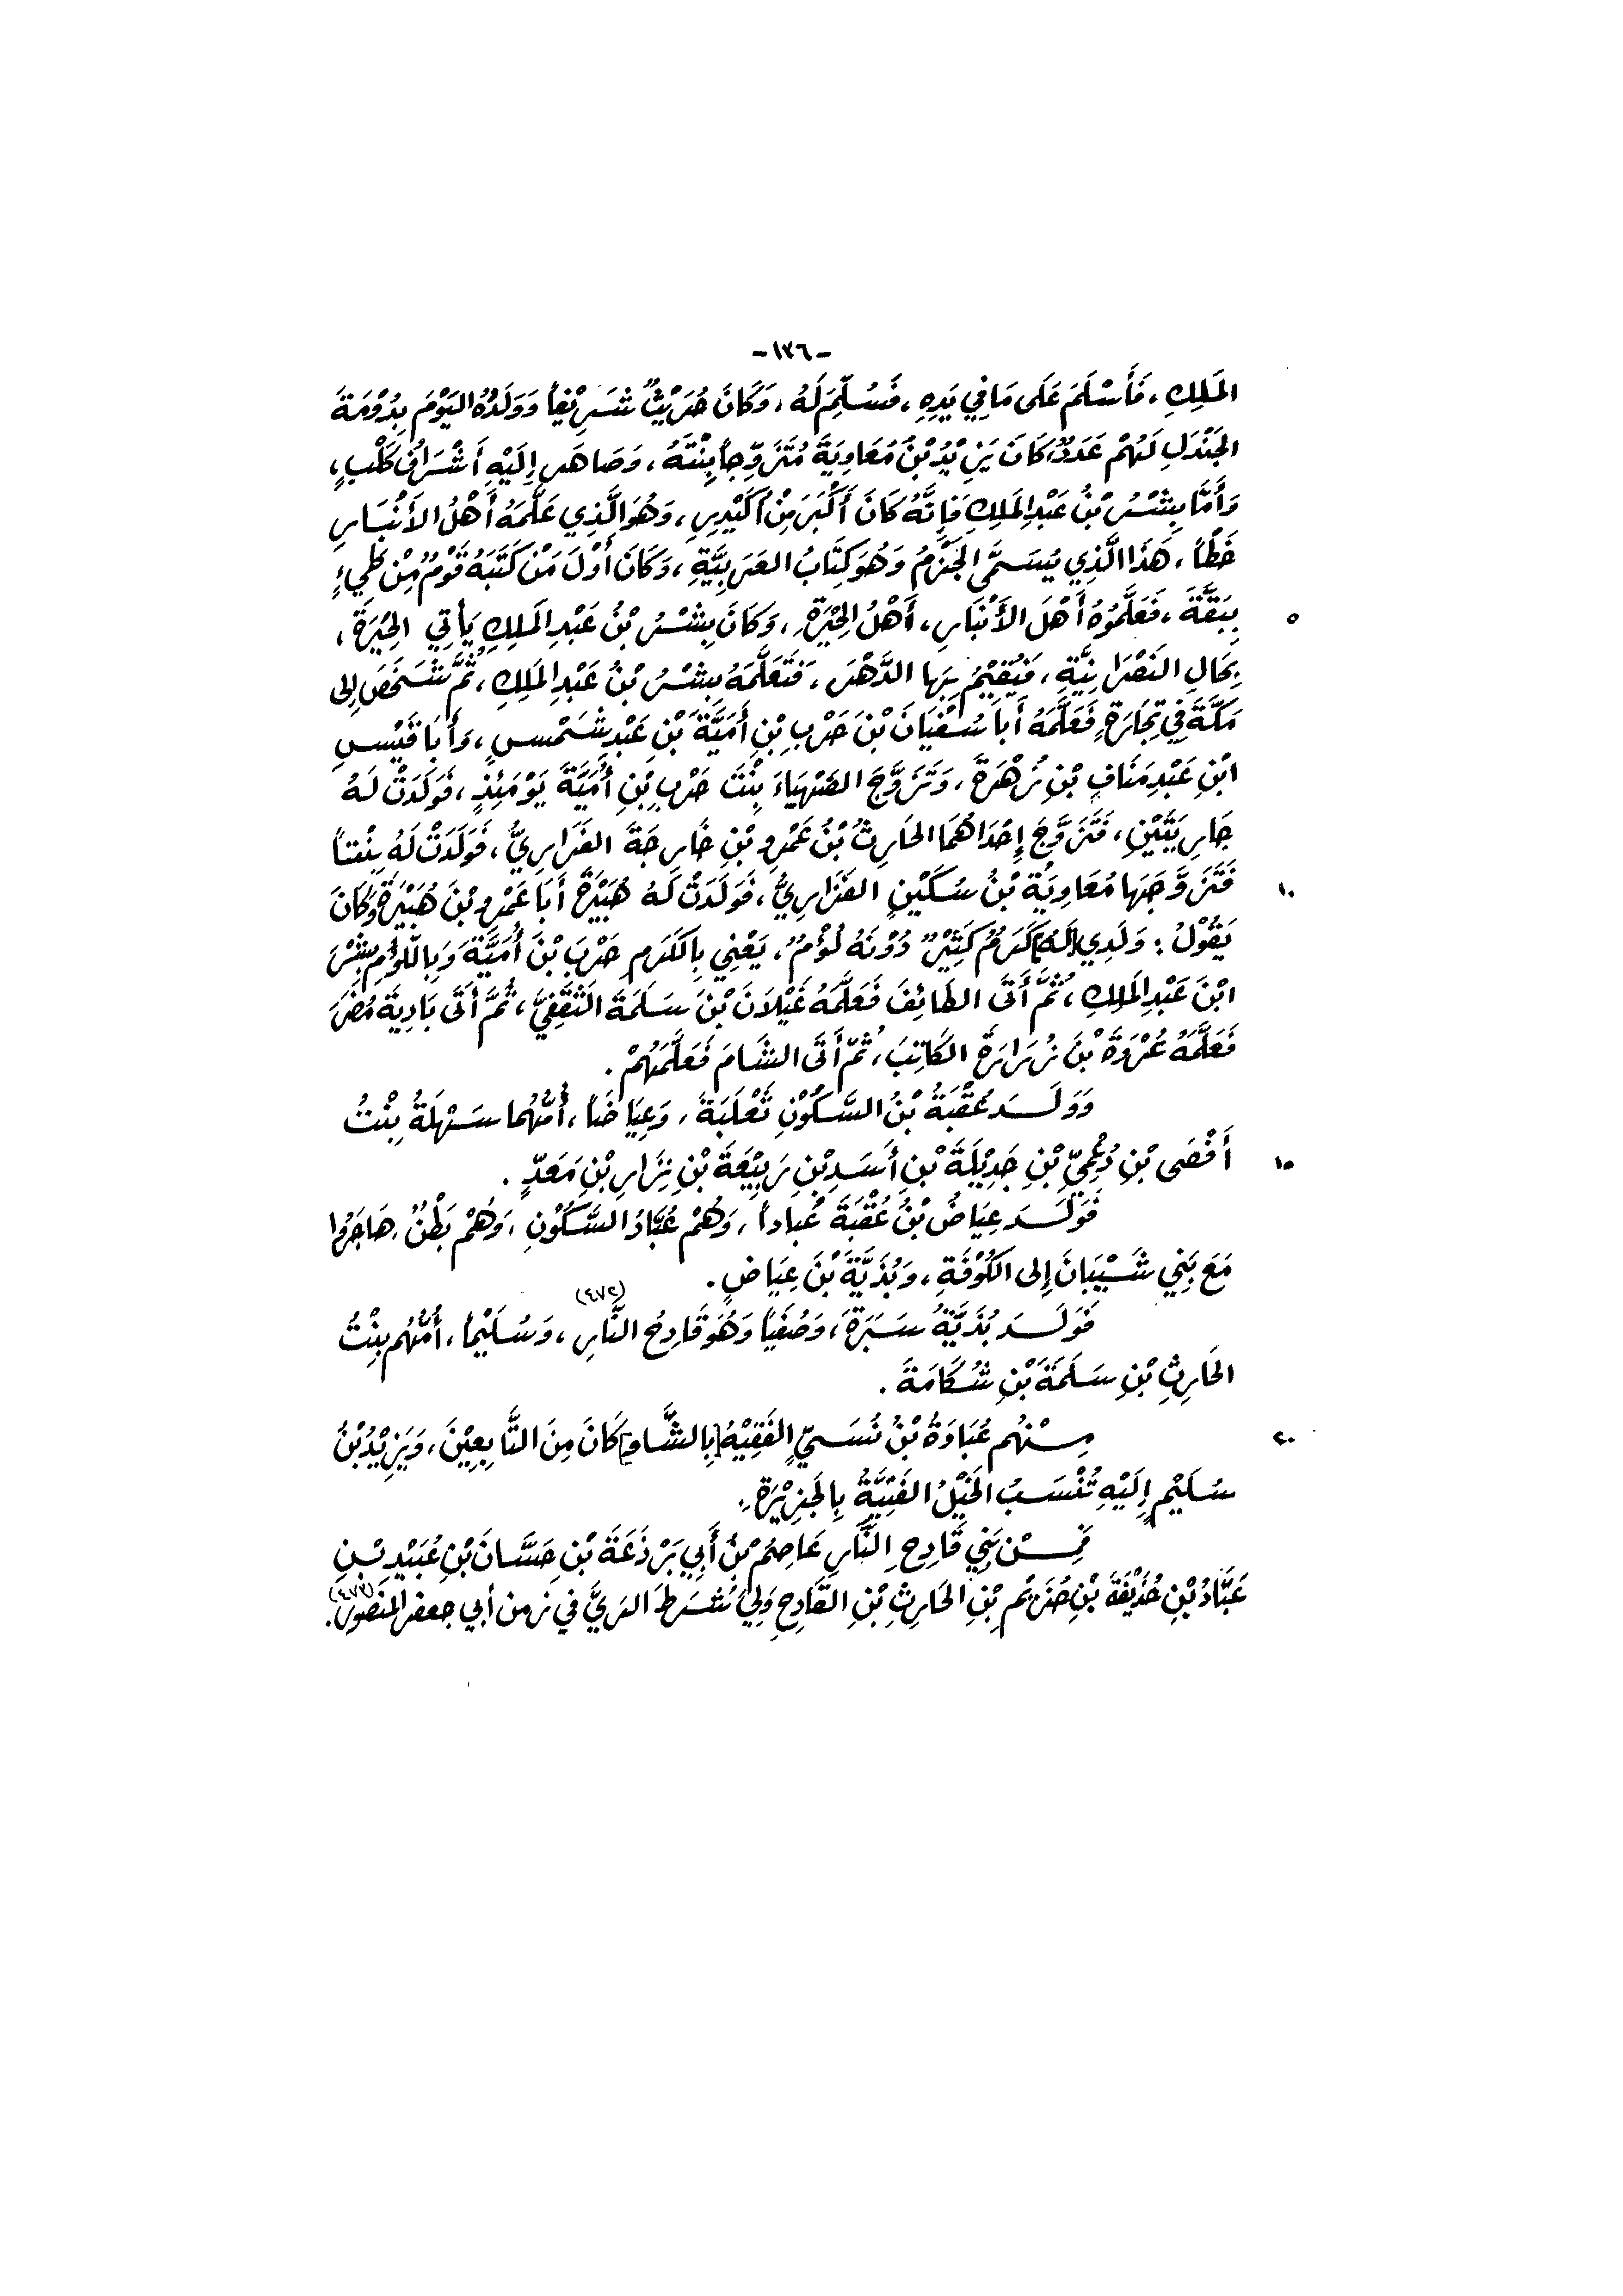 -١٣٦-
المَلِكِ، فَأَسْلَمَ عَلَى مَا فِي يَدِهِ، فَسُلِّمَ لَهُ، وَكَانَ حُرَيْثٌ شَرِيْفاً وَوَلَدُهُ اليَوْمَ بِدُوْمَةَ
الجَنْدَلِ لَهُمْ عَدَدٌ، كَانَ يَزِيْدُ بْنُ مُعَاوِيَةَ مُتَزَوِّجاً بِنْتَهُ، وَصَاهَرَ إِلَيْهِ أَشْرَافُ كَلْبٍ،
وَأَمَّا بِشْرُ بْنُ عَبْدِ المَلِكِ فَإِنَّهُ كَانَ أَكْبَرَ مِنْ أُكَيْدِرِ، وَهُوَ الَّذِي عَلَّمَهُ أَهْلُ الأَنْبَارِ
خَطَّاً، هَذَا الَّذِي يُسَمَّى الجَزْمُ وَهُوَ كِتَابُ العَرَبِيَّةِ، وَكَانَ أَوْلَ مَنْ كَتَبَهُ قَوْمٌ مِنْ طَيِّءٍ
٥ بِبَقَّةَ، فَعَلَّمُوْهُ أَهْلَ الأَنْبَارِ، أَهْلُ الحِيْرَةِ، وَكَانَ بِشْرُ بْنُ عَبْدِ المَلِكِ يَأْتِي الحِيْرَةَ،
بِحَالِ النَصْرَانِيَّةِ، فَيُقِيْمُ بِهَا الدَّهْرَ، فَتَعَلَّمَهُ بِشْرُ بْنُ عَبْدِ المَلِكِ، ثُمَّ شَخَصَ إِلى
مَكَّةَ فِي تِجَارَةٍ فَعَلَّمَهُ أَبا سُفْيَانَ بْنَ حَرْبِ بْنِ أُمَيَّةَ بْنِ عَبْدِ شَمْسٍ، وَأَبَا قَيْسِ
ابْنِ عَبْدِ مَنَافِ بْنِ زُهْرَةَ، وَتَزَوَّجَ الصَهْيَاءَ بِنْتَ حَرْبِ بْنِ أُمَيَّةَ يَوْمَئِذٍ، فَوَلَدَتْ لَهُ
جَارِيَتَيْنِ، فَتَزَوَّجَ إِحْدَاهُمَا الحَارِثُ بْنُ عَمْرِو بْنِ خَارِجَةَ الفَزَارِيُّ، فَوَلَدَتْ لَهُ بِنْتاً
١٠ فَتَزَوَّجَهَا مُعَاوِيَةُ بْنُ سُكَيْنٍ الفَزَارِيُّ، فَوَلَدَتْ لَهُ هُبَيْرَةَ أَبَا عَمْرِو بْنَ هُبَيْرَةَ وَكَانَ
يَقُوْلُ: وَلَدِي [لَهُ] كَرَمٌ كَثِيْرٌ دُوْنَهُ لُؤْمٌ، يَعْنِي بِالكَرَمِ حَرْبَ بْنَ أُمَيَّةَ وَبِاللُّؤْمِ بِشْرَ
ابْنَ عَبْدِ المَلِكِ، ثُمَّ أَتَى الطَائِفَ فَعَلَّمَهُ غَيْلَانَ بْنَ سَلَمَةَ الثَقَفِيَّ، ثُمَّ أَتَى بَادِيَةَ مُضَرَ
فَعَلَّمَهُ عُرْوَةَ بْنَ زُرَارَةَ الكَاتِبَ، ثُمَّ أَتَى الشَامَ فَعَلَّمَهُمْ.
وَوَلَدَ عُقْبَةُ بْنُ السَّكُوْنِ ثَعْلَبَةَ، وَعِيَاضاً، أُمُّهُما سَهْلَةُ بِنْتُ
١٥ أَفْصَى بْنِ دُعْمِيِّ بْنِ جَدِيْلَةَ بْنِ أَسَدِ بْنِ رَبِيْعَةَ بْنِ نِزَارِ بْنِ مَعَدٍّ.
فَوَلَدَ عِيَاضُ بْنُ عُقْبَةَ عُبَاداً، وَهُمْ عُبَّادُ السَّكُوْنِ، وَهُمْ بَطْنٌ، هَاجَرُوا
مَعَ بَنِي شَيْبَانَ إِلى الكُوْفَةِ، وَبُذَيَّةَ بْنَ عِيَاضٍ.
فَوَلَدَ بُذَيَّةُ سَبَرَةَ، وَصُفَيَّاً وَهُوَ قَادِحُ النَّارِ (٤٧٢)، وَسُلَيْماً، أُمُّهُم بِنْتُ
الحَارِثِ بْنِ سَلَمَةَ بْنِ شُكَامَةَ.
٢٠ مِنْهُم عُبَادَةُ بْنُ نُسَيٍّ الفَقِيْهُ [بِالشَّامِ] كَانَ مِنَ التَّابِعِيْنَ، وَيَزِيْدُ بْنُ
سُلَيْمٍ إِلَيْهِ تُنْسَبُ الخَيْلُ الفَتِيَّةُ بِالجَزِيْرَةِ.
فَمِنْ بَنِي قَادِحِ النَّارِ عَاصِمُ بْنُ أَبِي بَرْذَعَةَ بْنِ حَسَّانَ بْنِ عُبَيْدِ بْنِ
عَبَّادُ بْنِ حُذَيْفَةَ بْنِ حُزَيْمِ بْنِ الحَارِثِ بْنِ القَادِحِ وَلِيَ شُرَطَ الرَيِّ في زمن أبي جعفر المنصور (٤٧٣).